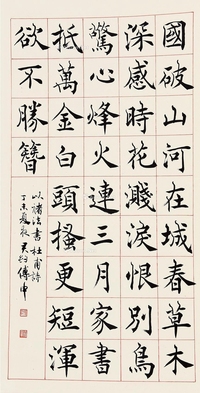 國破山河在城春草木
深感時花濺淚恨別鳥
驚心烽火連三月家書
抵萬金白頭搔更短渾
欲不勝簪
以褚法書杜甫詩
丁未夏 君約傅申